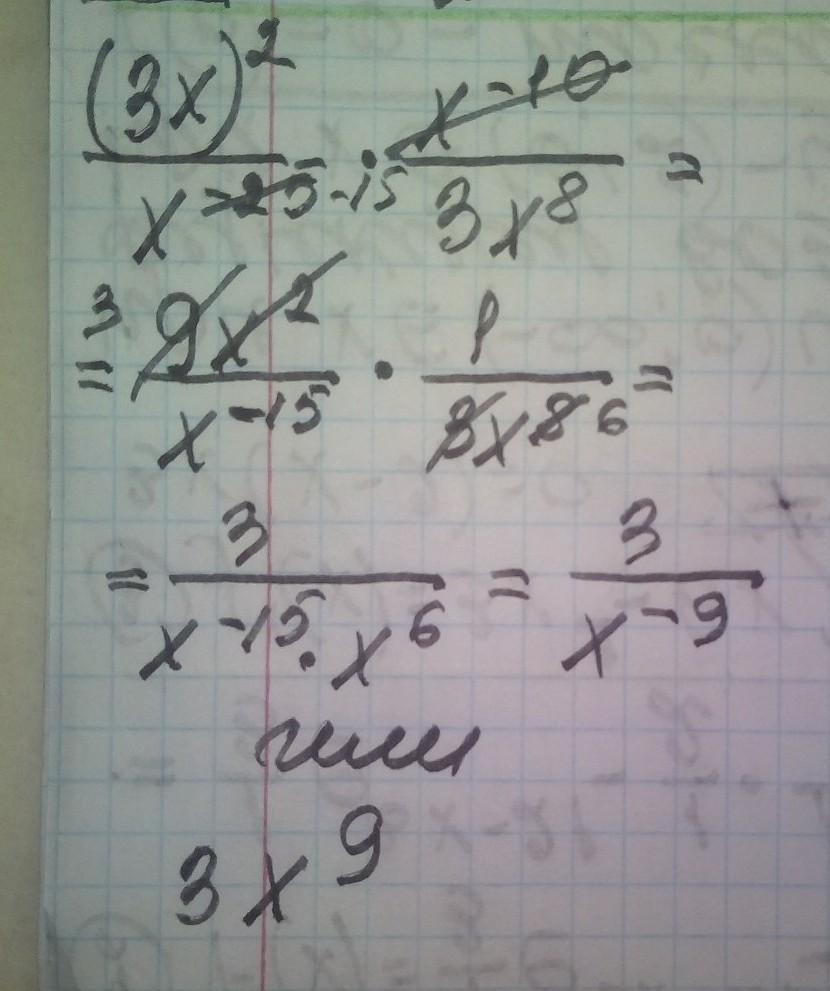 (3x)² / x⁻²⁵ ⁻¹⁵ · x⁻¹⁰ / 3x⁸ =
= 3 9x² / x⁻¹⁵ · 1 / 3x⁸ ⁶ =
= 3 / x⁻¹⁵ · x⁶ = 3 / x⁻⁹
или
3x⁹